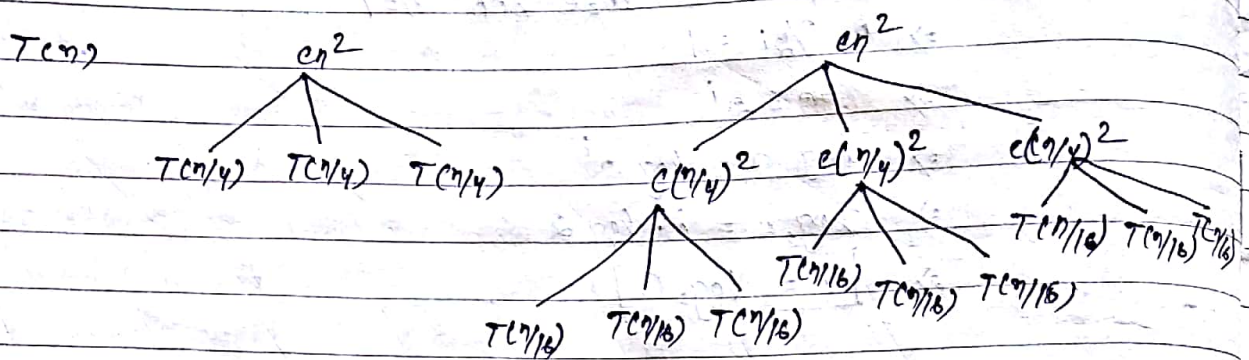 T(n) cn² cn²
T(n/4) T(n/4) T(n/4) c(n/4)² c(n/4)² c(n/4)²
T(n/16) T(n/16) T(n/16) T(n/16) T(n/16) T(n/16) T(n/16) T(n/16) T(n/16)